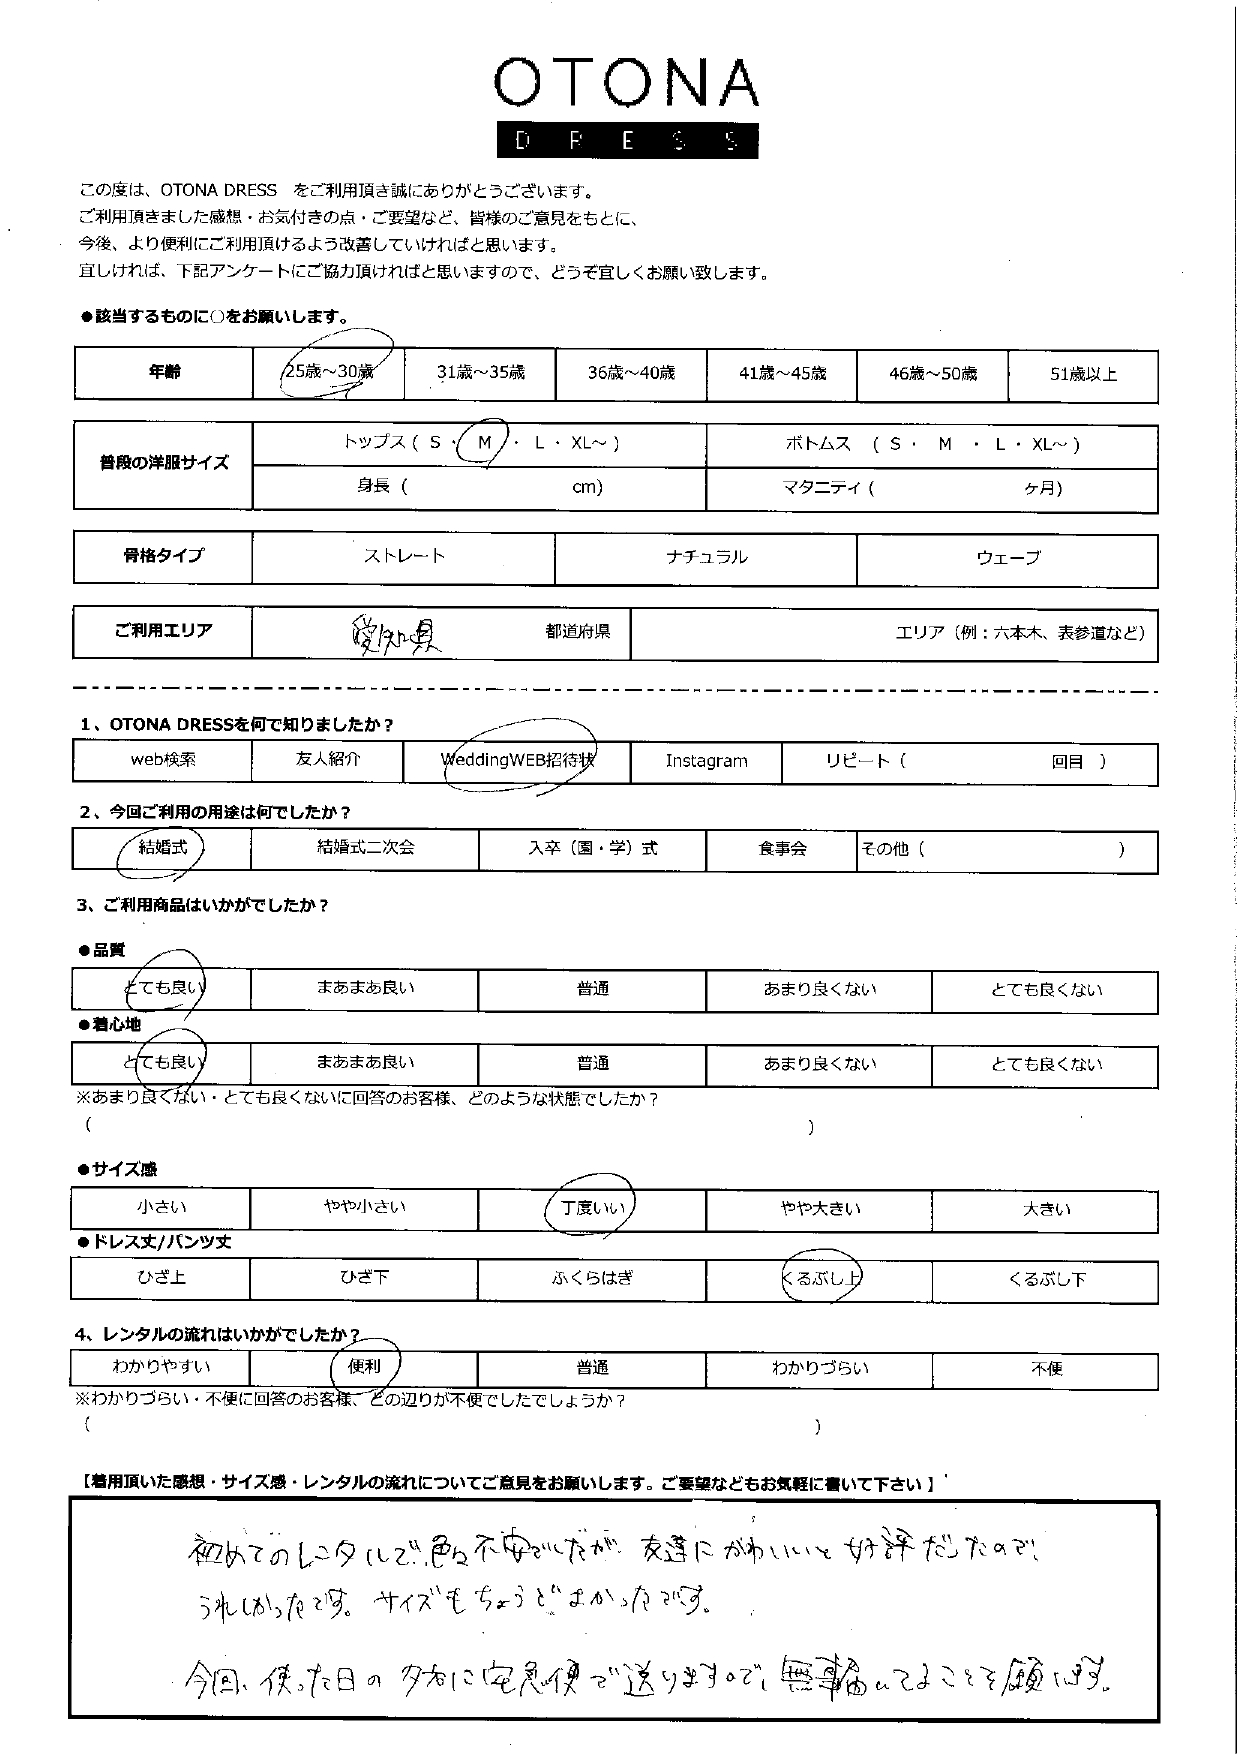 OTONA
DRESS
この度は、OTONA DRESS　をご利用頂き誠にありがとうございます。
ご利用頂きました感想・お気付きの点・ご要望など、皆様のご意見をもとに、
今後、より便利にご利用頂けるよう改善していければと思います。
宜しければ、下記アンケートにご協力頂ければと思いますので、どうぞ宜しくお願い致します。
●該当するものに○をお願いします。
年齢 25歳～30歳 31歳～35歳 36歳～40歳 41歳～45歳 46歳～50歳 51歳以上
普段の洋服サイズ
トップス ( S ・ M ・ L ・ XL～ ) ボトムス ( S ・ M ・ L ・ XL～ )
身長 ( cm) マタニティ ( ヶ月)
骨格タイプ ストレート ナチュラル ウェーブ
ご利用エリア 愛知県 都道府県 エリア（例：六本木、表参道など）
1、OTONA DRESSを何で知りましたか？
web検索 友人紹介 WeddingWEB招待状 Instagram リピート（ 回目 ）
2、今回ご利用の用途は何でしたか？
結婚式 結婚式二次会 入卒（園・学）式 食事会 その他（ ）
3、ご利用商品はいかがでしたか？
●品質
とても良い まあまあ良い 普通 あまり良くない とても良くない
●着心地
とても良い まあまあ良い 普通 あまり良くない とても良くない
※あまり良くない・とても良くないに回答のお客様、どのような状態でしたか？
( )
●サイズ感
小さい やや小さい 丁度いい やや大きい 大きい
●ドレス丈/パンツ丈
ひざ上 ひざ下 ふくらはぎ くるぶし上 くるぶし下
4、レンタルの流れはいかがでしたか？
わかりやすい 便利 普通 わかりづらい 不便
※わかりづらい・不便に回答のお客様、どの辺りが不便でしたでしょうか？
( )
【着用頂いた感想・サイズ感・レンタルの流れについてご意見をお願いします。ご要望などもお気軽に書いて下さい】
初めてのレンタルで、色々不安でしたが 友達にかわいいと好評だったので、
うれしかったです。サイズもちょうどよかったです。
今回、使った日の夕方に宅急便で送りますので、無事届いてることを願います。